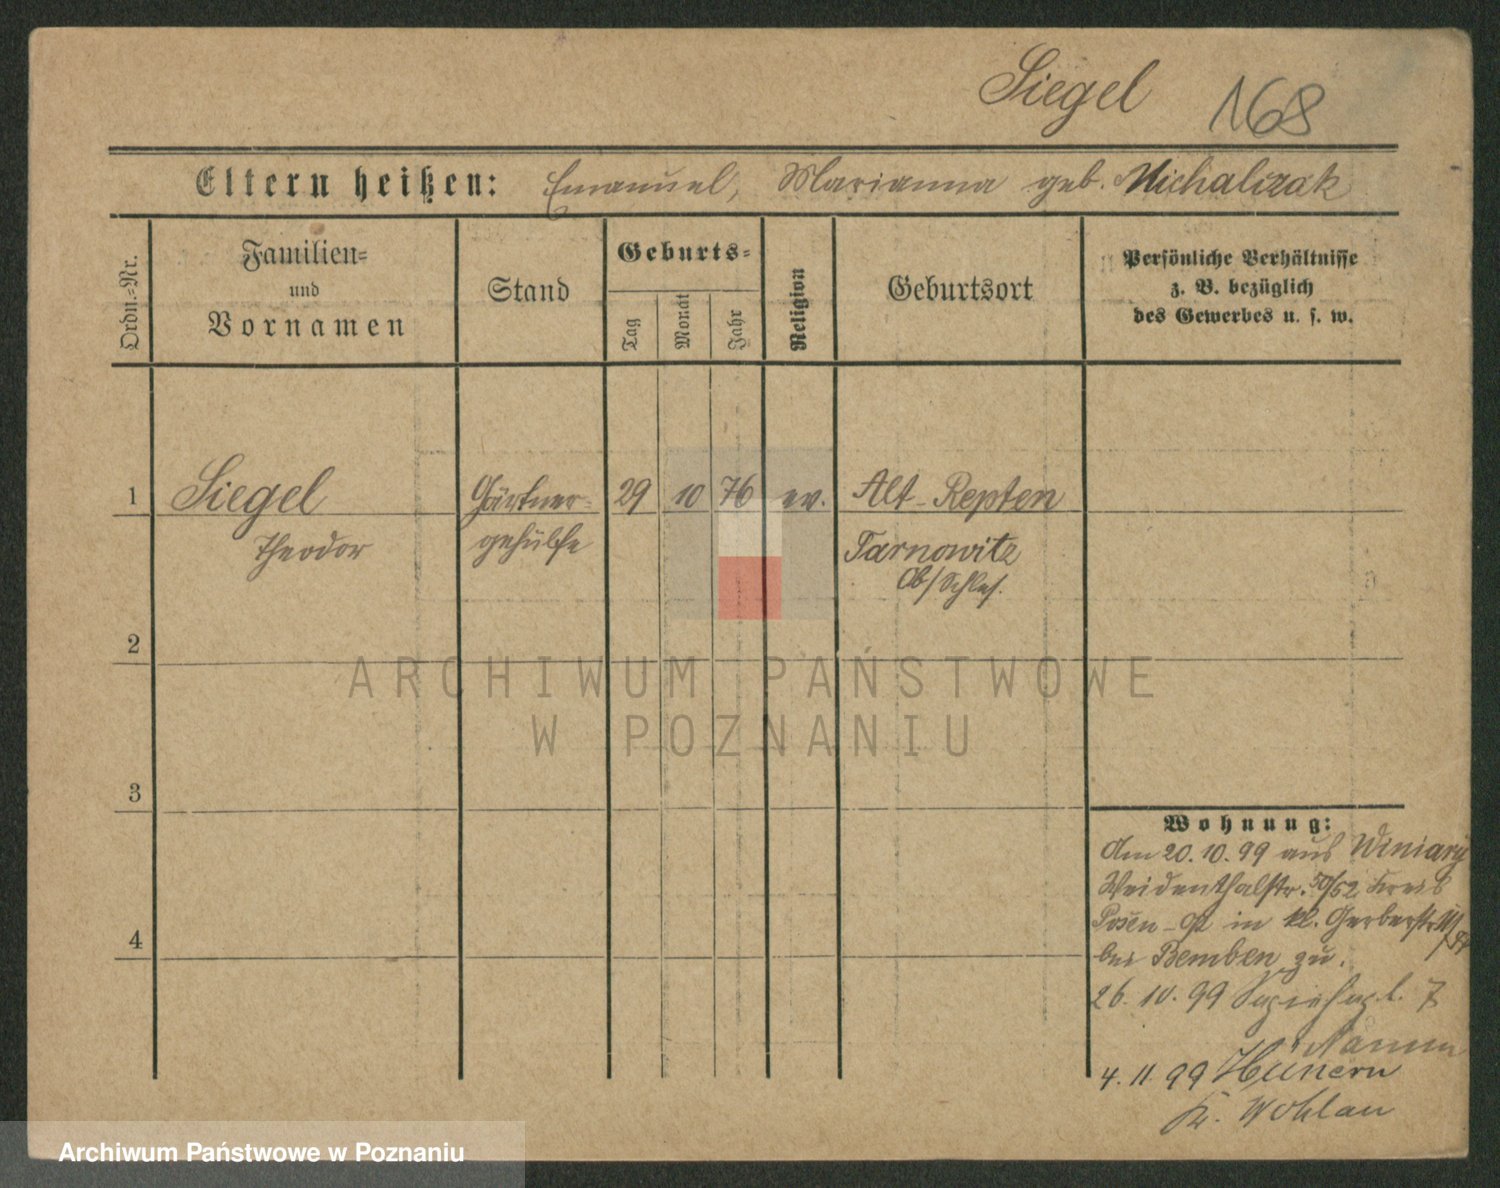 Siegel 168
Eltern heißen: Emanuel, Marianna geb. Michalczak
Ordn.-Nr.
Familien-
und
Vornamen
Stand
Geburts-
Tag
Monat
Jahr
Religion
Geburtsort
Persönliche Verhältnisse
z. B. bezüglich
des Gewerbes u. s. w.
1 Siegel Gärtner- 29 10 76 ev. Alt-Repten
Theodor gehülfe Tarnowitz
Ob/Schles.
2
3
4
Wohnung:
Am 20.10.99 aus Winiary
Weidenthalstr. 50/52 Kreis
Posen-Ost in kl. Gerberstr.
bei Bemben zu.
26.10.99 Sapiehapl. 7
Namm
4.11.99 Hünern
Kr. Wohlau
ARCHIWUM PAŃSTWOWE
W POZNANIU
Archiwum Państwowe w Poznaniu